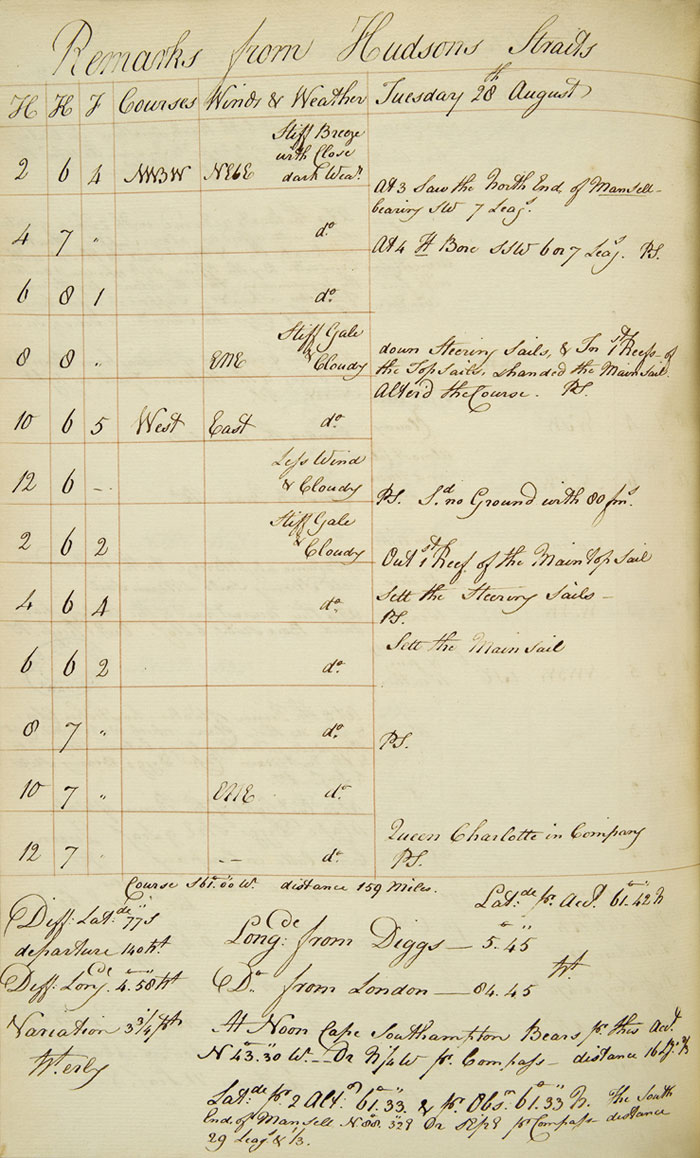 Remarks from Hudsons Straits
H H F Courses Winds & Weather Tuesday 28th August
Stiff Breeze
with Close
2 6 4 NWBW NEbE dark Wear.
At 3 Saw the North End of Mansell
bearing SW 7 Leags.
4 7 " do.
At 4 It Bore SSW 6 or 7 Leags. PS.
6 8 1 do.
Stiff Gale
8 8 " ENE & Cloudy
down Steering Sails, & In 1st Reefs of
the Top Sails. & handed the Main Sail.
Alterd the Course. PS.
10 6 5 West East do.
Less Wind
12 6 - & Cloudy
PS. Sd. no Ground with 80 fms.
Stiff Gale
2 6 2 & Cloudy
Out 1st Reef of the Main top Sail
4 6 4 do.
Sett the Steering Sails -
PS.
Sett the Main Sail
6 6 2 do.
8 7 " do.
PS.
10 7 " ENE do.
Queen Charlotte in Company
12 7 " -- do.
PS.
Course S61°.00 W. distance 159 Miles.
Latde. pr. Acct. 61°.42 N
Diff: Latde 77 S
Longde: from Diggs — 5°.45"
departure 140 Wt.
Diff. Long. 4°.58" Wt
Do. from London — 84.45 Wt.
Variation 3 3/4 pts
Werly
At Noon Cape Southampton Bears pr. this Acct.
N 43°.30" W — Or N 1/4 W pr. Compass — distance 16
Latde pr. 2 Alt. 61°.33" & pr. Obsn. 61°.33" N. The South
End of Mansell N 88°.32 E Or pr Compass — distance
29 Leags & 1/3.